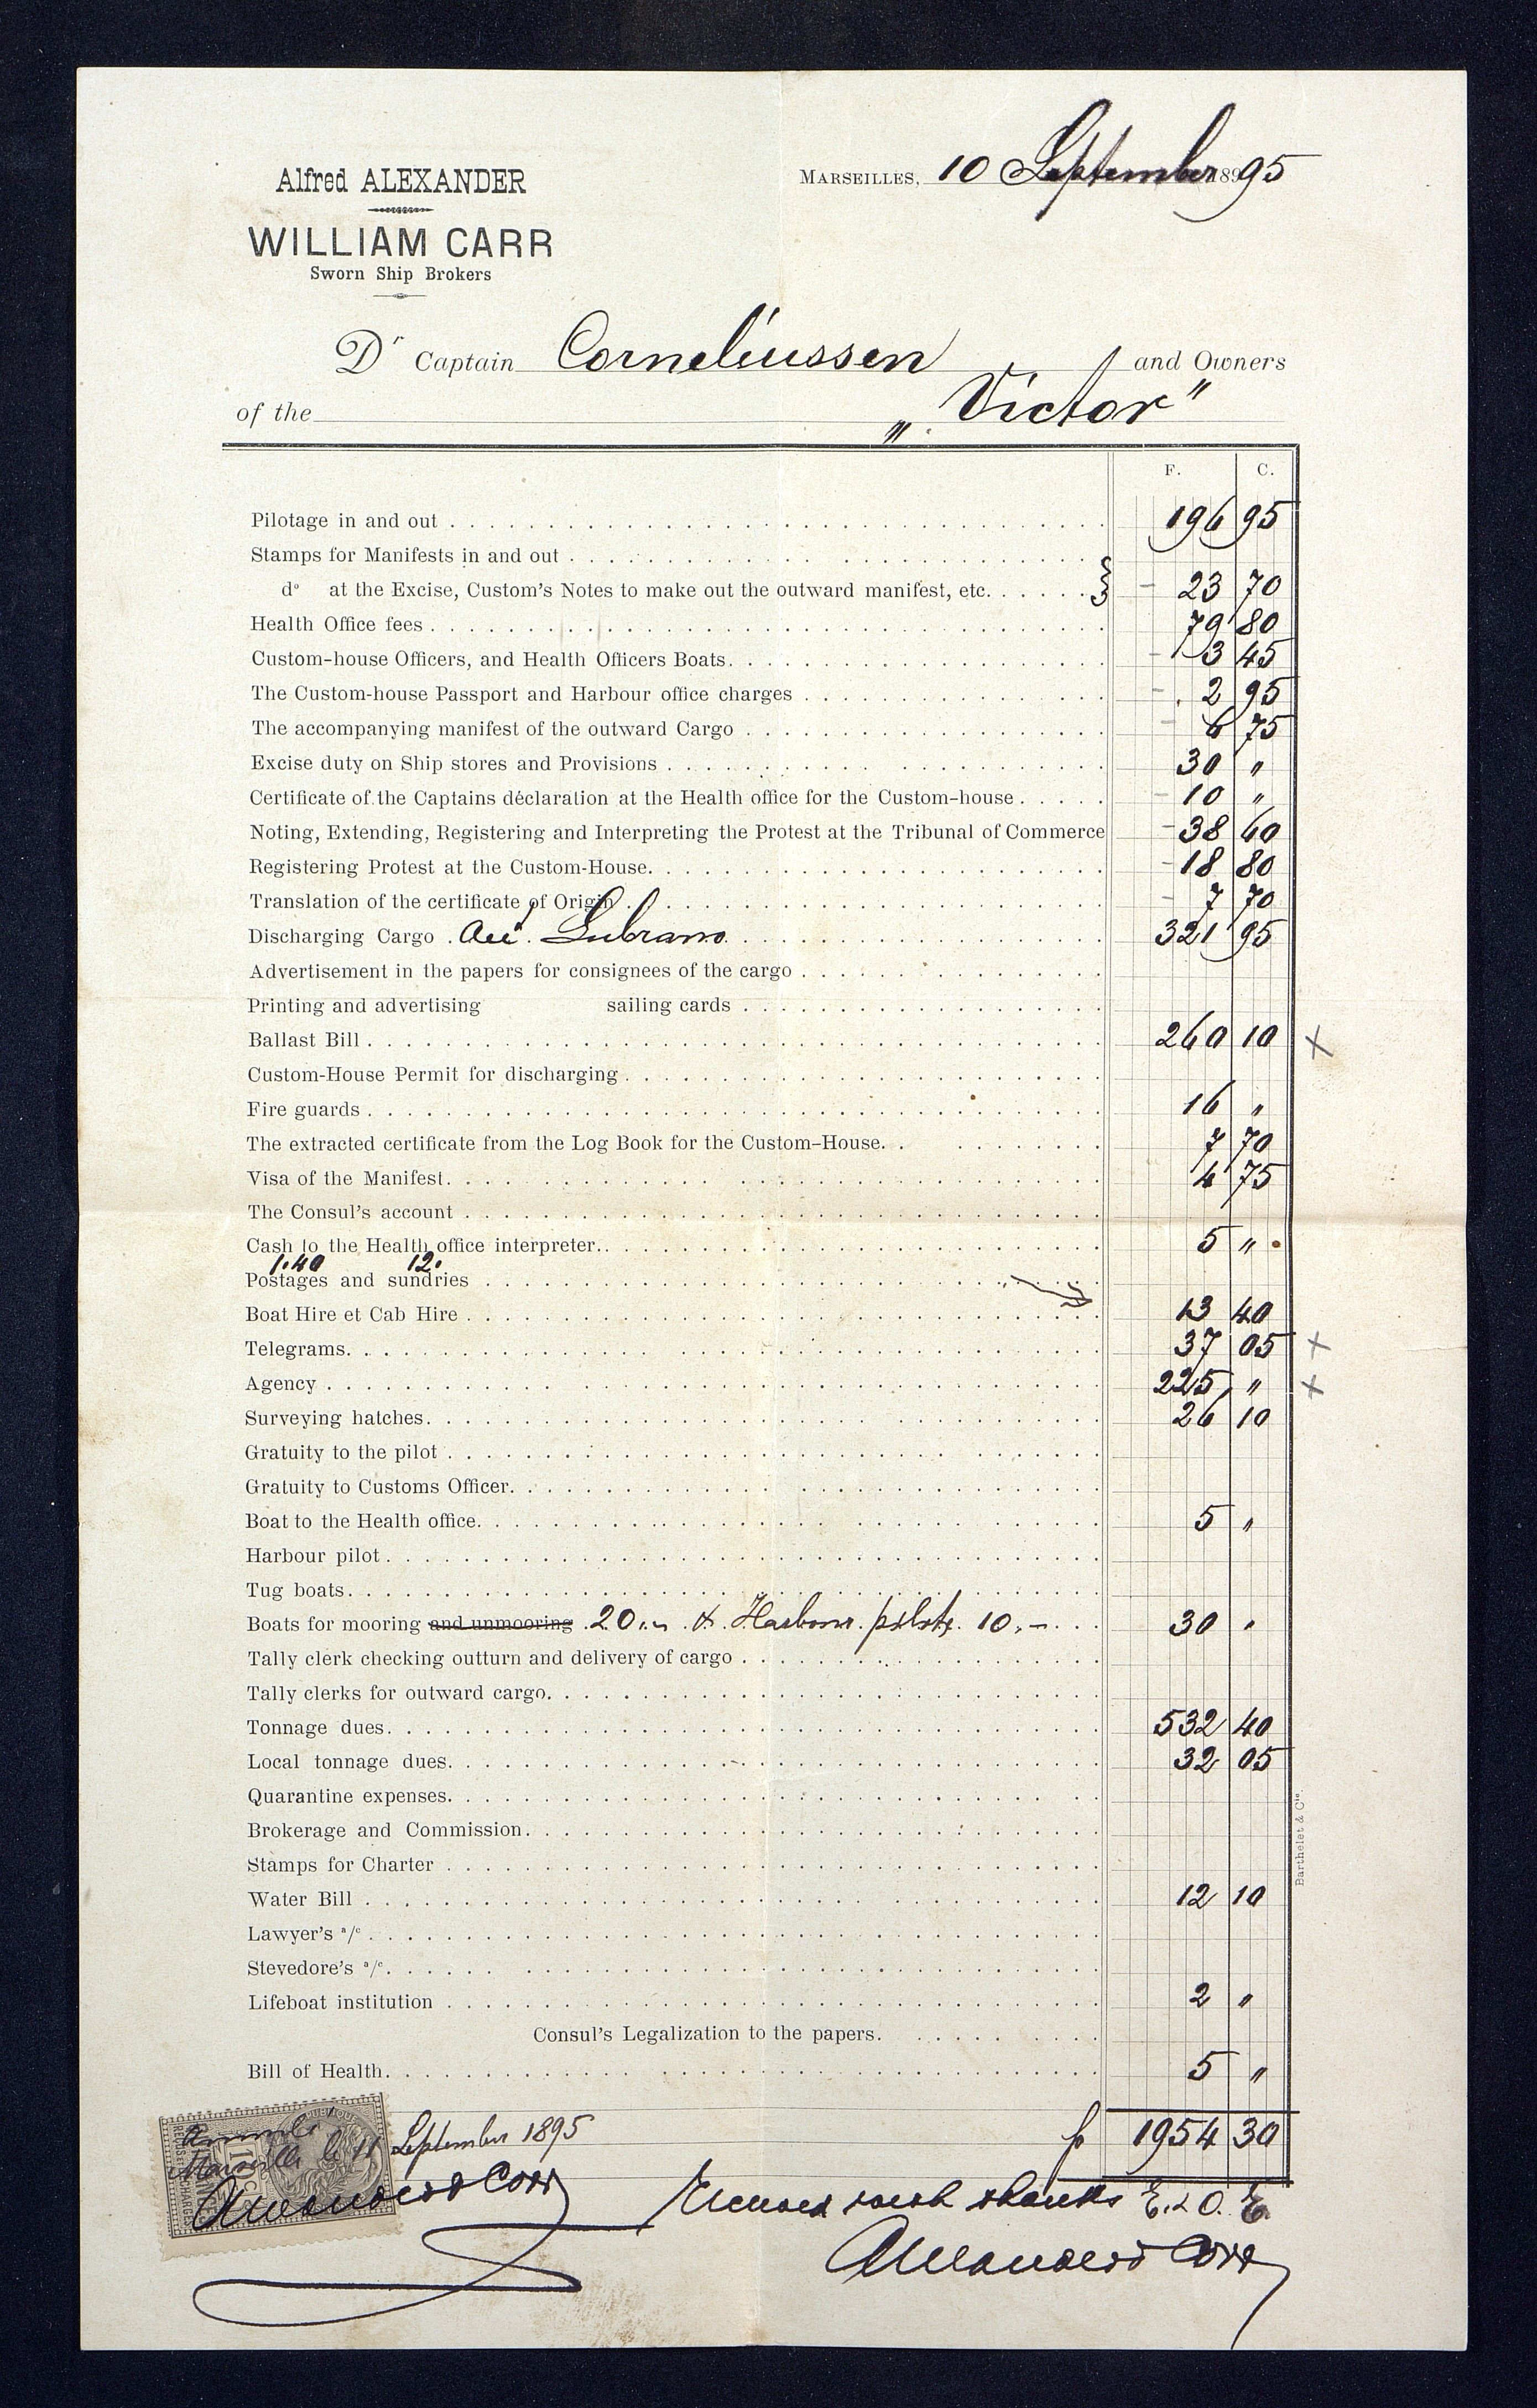 Alfred ALEXANDER
WILLIAM CARR
Sworn Ship Brokers
MARSEILLES, 10 September 18995
Dr Captain Corneliussen and Owners
of the „Victor"
F. C.
Pilotage in and out 196 95
Stamps for Manifests in and out
do at the Excise, Custom's Notes to make out the outward manifest, etc. - 23 70
Health Office fees 79 80
Custom-house Officers, and Health Officers Boats. - 3 45
The Custom-house Passport and Harbour office charges - 2 95
The accompanying manifest of the outward Cargo - 6 75
Excise duty on Ship stores and Provisions 30 "
Certificate of the Captains déclaration at the Health office for the Custom-house - 10 "
Noting, Extending, Registering and Interpreting the Protest at the Tribunal of Commerce - 38 60
Registering Protest at the Custom-House. - 18 80
Translation of the certificate of Origin - 7 70
Discharging Cargo Lubrano 321 95
Advertisement in the papers for consignees of the cargo
Printing and advertising sailing cards
Ballast Bill 260 10 x
Custom-House Permit for discharging
Fire guards 16 "
The extracted certificate from the Log Book for the Custom-House. 7 70
Visa of the Manifest. 4 75
The Consul's account
Cash to the Health office interpreter. 5 "
1.40 12.
Postages and sundries
Boat Hire et Cab Hire 13 40
Telegrams. 37 05 x
Agency 225 " x
Surveying hatches. 26 10
Gratuity to the pilot
Gratuity to Customs Officer.
Boat to the Health office. 5 "
Harbour pilot
Tug boats.
Boats for mooring and unmooring 20.- & Harbour pilote 10.- 30 "
Tally clerk checking outturn and delivery of cargo
Tally clerks for outward cargo.
Tonnage dues. 532 40
Local tonnage dues. 32 05
Quarantine expenses.
Brokerage and Commission.
Stamps for Charter
Water Bill 12 10
Lawyer's a/c
Stevedore's a/c
Lifeboat institution 2 "
Consul's Legalization to the papers.
Bill of Health. 5 "
f 1954 30
Marseille le 11 September 1895
E. & O. E.
Barthelet & Cie.